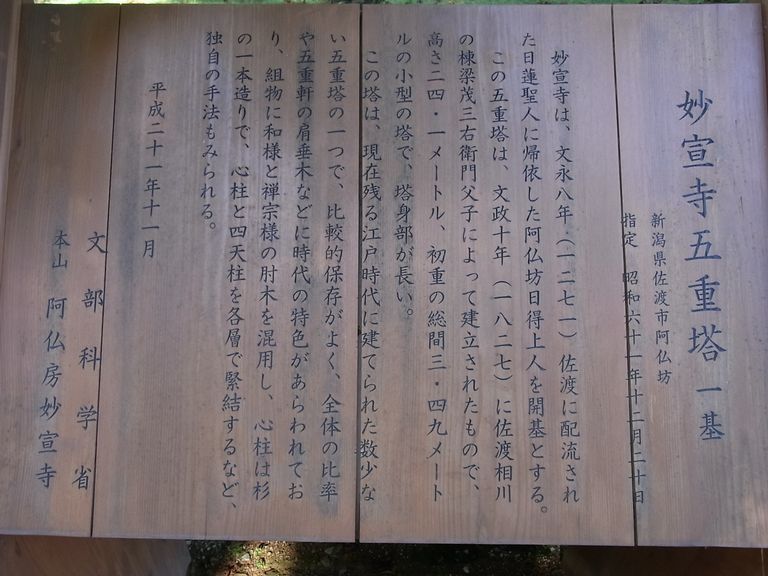 妙宣寺五重塔 一基
新潟県佐渡市阿仏坊
指定 昭和六十一年十二月二十日
妙宣寺は、文永八年(一二七一)佐渡に配流され
た日蓮聖人に帰依した阿仏坊日得上人を開基とする。
この五重塔は、文政十年(一八二七)に佐渡相川
の棟梁茂三右衛門父子によって建立されたもので、
高さ二四・一メートル、初重の総間三・四九メート
ルの小型の塔で、塔身部が長い。
この塔は、現在残る江戸時代に建てられた数少な
い五重塔の一つで、比較的保存がよく、全体の比率
や五重軒の肩垂木などに時代の特色があらわれてお
り、組物に和様と禅宗様の肘木を混用し、心柱は杉
の一本造りで、心柱と四天柱を各層で緊結するなど、
独自の手法もみられる。
平成二十一年十一月
文部科学省
本山 阿仏房妙宣寺